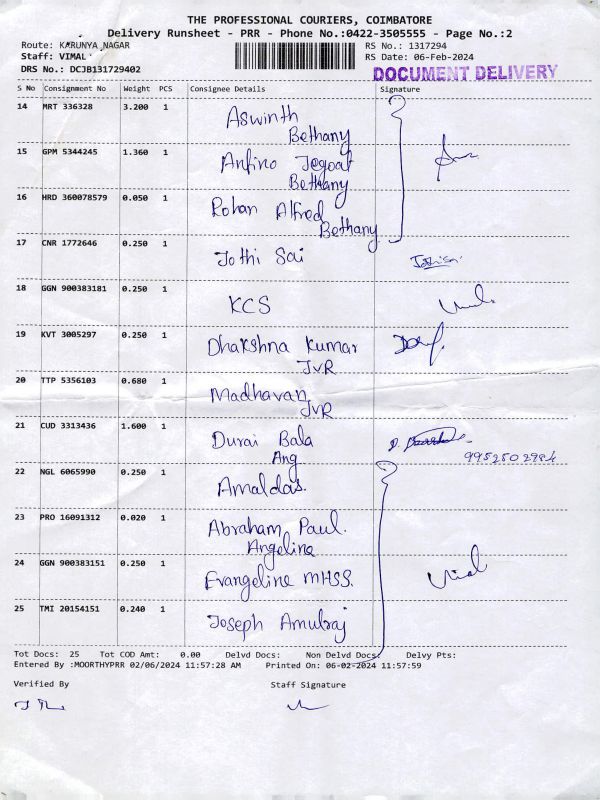 THE PROFESSIONAL COURIERS, COIMBATORE
Delivery Runsheet - PRR - Phone No.:0422-3505555 - Page No.:2
Route: KARUNYA NAGAR RS No.: 1317294
Staff: VIMAL RS Date: 06-Feb-2024
DRS No.: DCJB131729402 DOCUMENT DELIVERY
S No Consignment No Weight PCS Consignee Details Signature
14 MRT 336328 3.200 1 Aswinth
Bethany
15 GPM 5344245 1.360 1 Anfino Jegoat
Bethany
16 HRD 360078579 0.050 1 Rohan Alfred
Bethany
17 CNR 1772646 0.250 1 Jothi Sai
18 GGN 900383181 0.250 1 KCS
19 KVT 3005297 0.250 1 Dhakshna Kumar
JVR
20 TTP 5356103 0.680 1 Madhavan
JVR
21 CUD 3313436 1.600 1 Durai Bala
Ang
22 NGL 6065990 0.250 1 Amaldas.
23 PRO 16091312 0.020 1 Abraham Paul.
Angeline
24 GGN 900383151 0.250 1 Evangeline MHSS.
25 TMI 20154151 0.240 1 Joseph Amulraj
Tot Docs: 25 Tot COD Amt: 0.00 Delvd Docs: Non Delvd Docs: Delvy Pts:
Entered By :MOORTHYPRR 02/06/2024 11:57:28 AM Printed On: 06-02-2024 11:57:59
Verified By Staff Signature